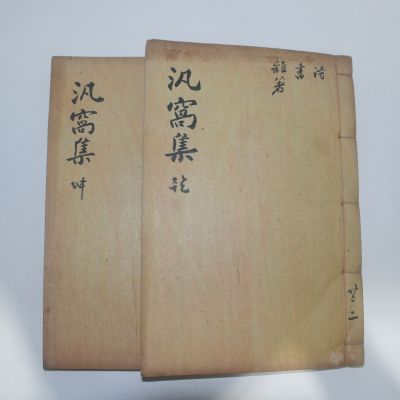 汎窩集 乾
詩
書
雜著
共二
汎窩集 坤